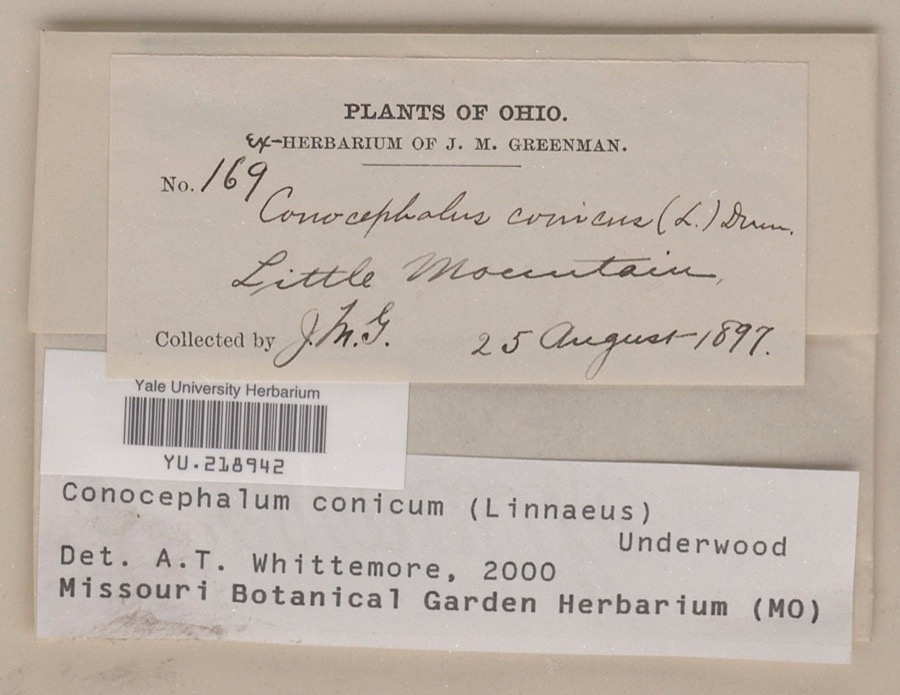 PLANTS OF OHIO.
Ex-HERBARIUM OF J. M. GREENMAN.
No. 169
Conocephalus conicus (L.) Dum.
Little Mountain,
Collected by J.M.G. 25 August 1897.
Yale University Herbarium
YU.218942
Conocephalum conicum (Linnaeus)
Underwood
Det. A.T. Whittemore, 2000
Missouri Botanical Garden Herbarium (MO)